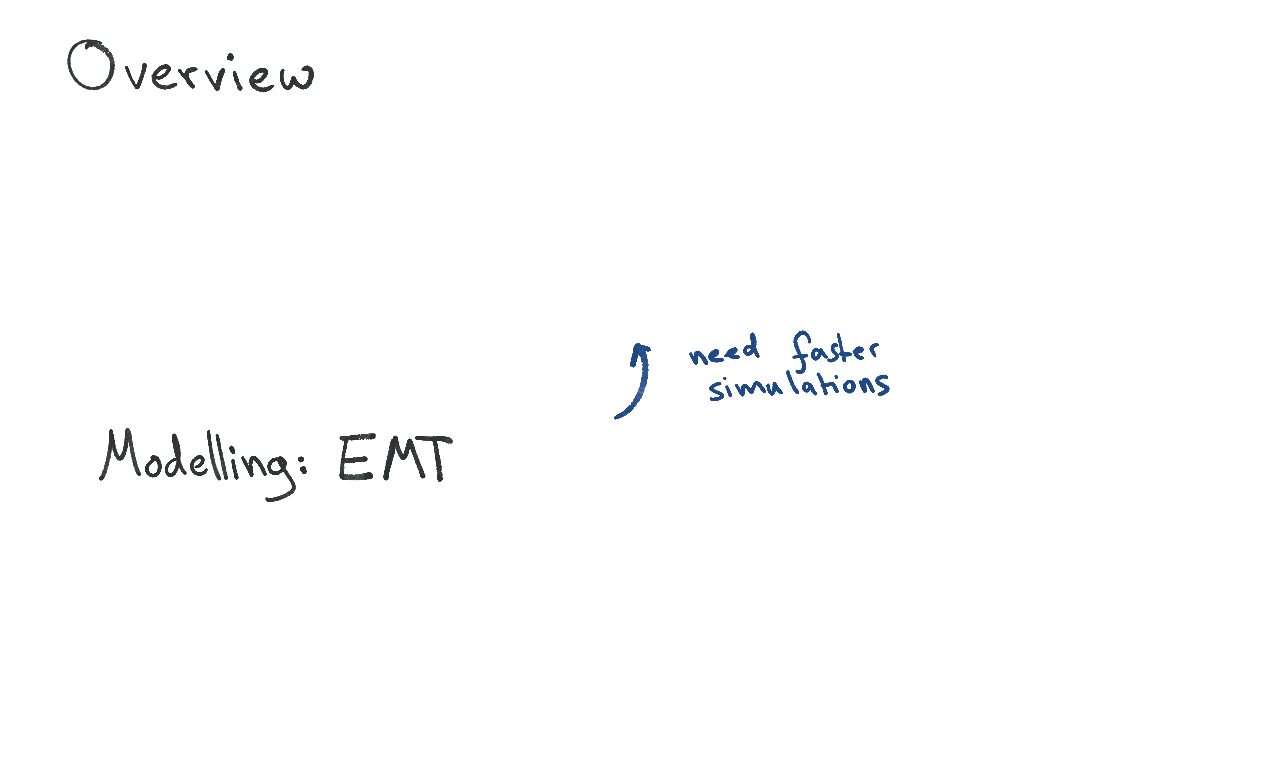 Overview
need faster
simulations
Modelling: EMT